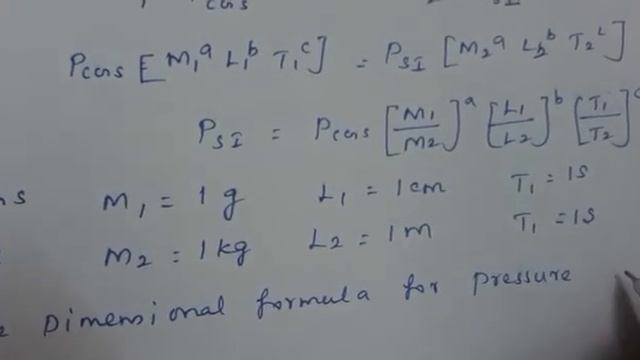 cgs SI
Pcgs [M₁ᵃ L₁ᵇ T₁ᶜ] = PSI [M₂ᵃ L₂ᵇ T₂ᶜ]
PSI = Pcgs [M₁/M₂]ᵃ [L₁/L₂]ᵇ [T₁/T₂]ᶜ
M₁ = 1 g L₁ = 1 cm T₁ = 1S
M₂ = 1 kg L₂ = 1 m T₁ = 1S
Dimensional formula for pressure